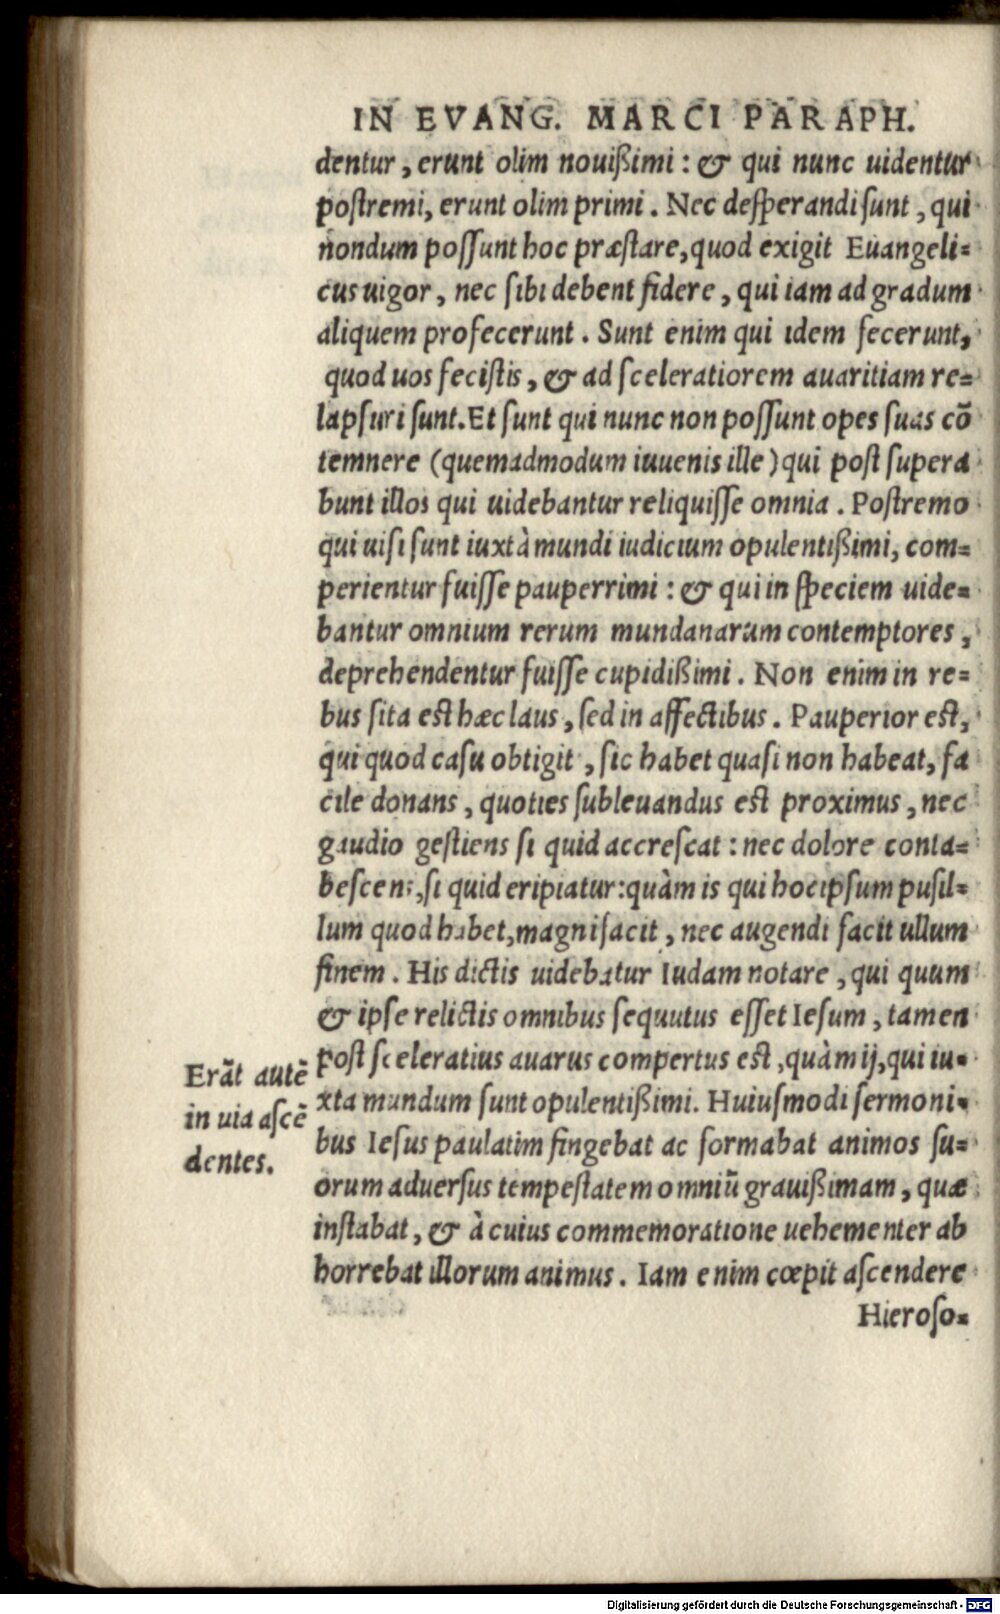 IN EVANG. MARCI PARAPH.
dentur, erunt olim nouißimi: & qui nunc uidentur
postremi, erunt olim primi. Nec desperandi sunt, qui
nondum possunt hoc præstare, quod exigit Euangeli=
cus uigor, nec sibi debent fidere, qui iam ad gradum
aliquem profecerunt. Sunt enim qui idem fecerunt,
quod uos fecistis, & ad sceleratiorem auaritiam re=
lapsuri sunt. Et sunt qui nunc non possunt opes suas cō
temnere (quemadmodum iuuenis ille) qui post supera
bunt illos qui uidebantur reliquisse omnia. Postremo
qui uisi sunt iuxtà mundi iudicium opulentißimi, com=
perientur fuisse pauperrimi: & qui in speciem uide=
bantur omnium rerum mundanarum contemptores,
deprehendentur fuisse cupidißimi. Non enim in re=
bus sita est hæc laus, sed in affectibus. Pauperior est,
qui quod casu obtigit, sic habet quasi non habeat, fa
cile donans, quoties subleuandus est proximus, nec
gaudio gestiens si quid accrescat: nec dolore conta=
bescens, si quid eripiatur: quàm is qui hoc ipsum pusil=
lum quod habet, magnifacit, nec augendi facit ullum
finem. His dictis uidebatur Iudam notare, qui quum
& ipse relictis omnibus sequutus esset Iesum, tamen
post sceleratius auarus compertus est, quàm ij, qui iu=
xta mundum sunt opulentißimi. Huiusmodi sermoni=
bus Iesus paulatim fingebat ac formabat animos su=
orum aduersus tempestatem omniū grauißimam, quæ
instabat, & à cuius commemoratione uehementer ab
horrebat illorum animus. Iam enim cœpit ascendere
Hieroso=
Erāt autē
in uia ascē
dentes.
Digitalisierung gefördert durch die Deutsche Forschungsgemeinschaft - DFG